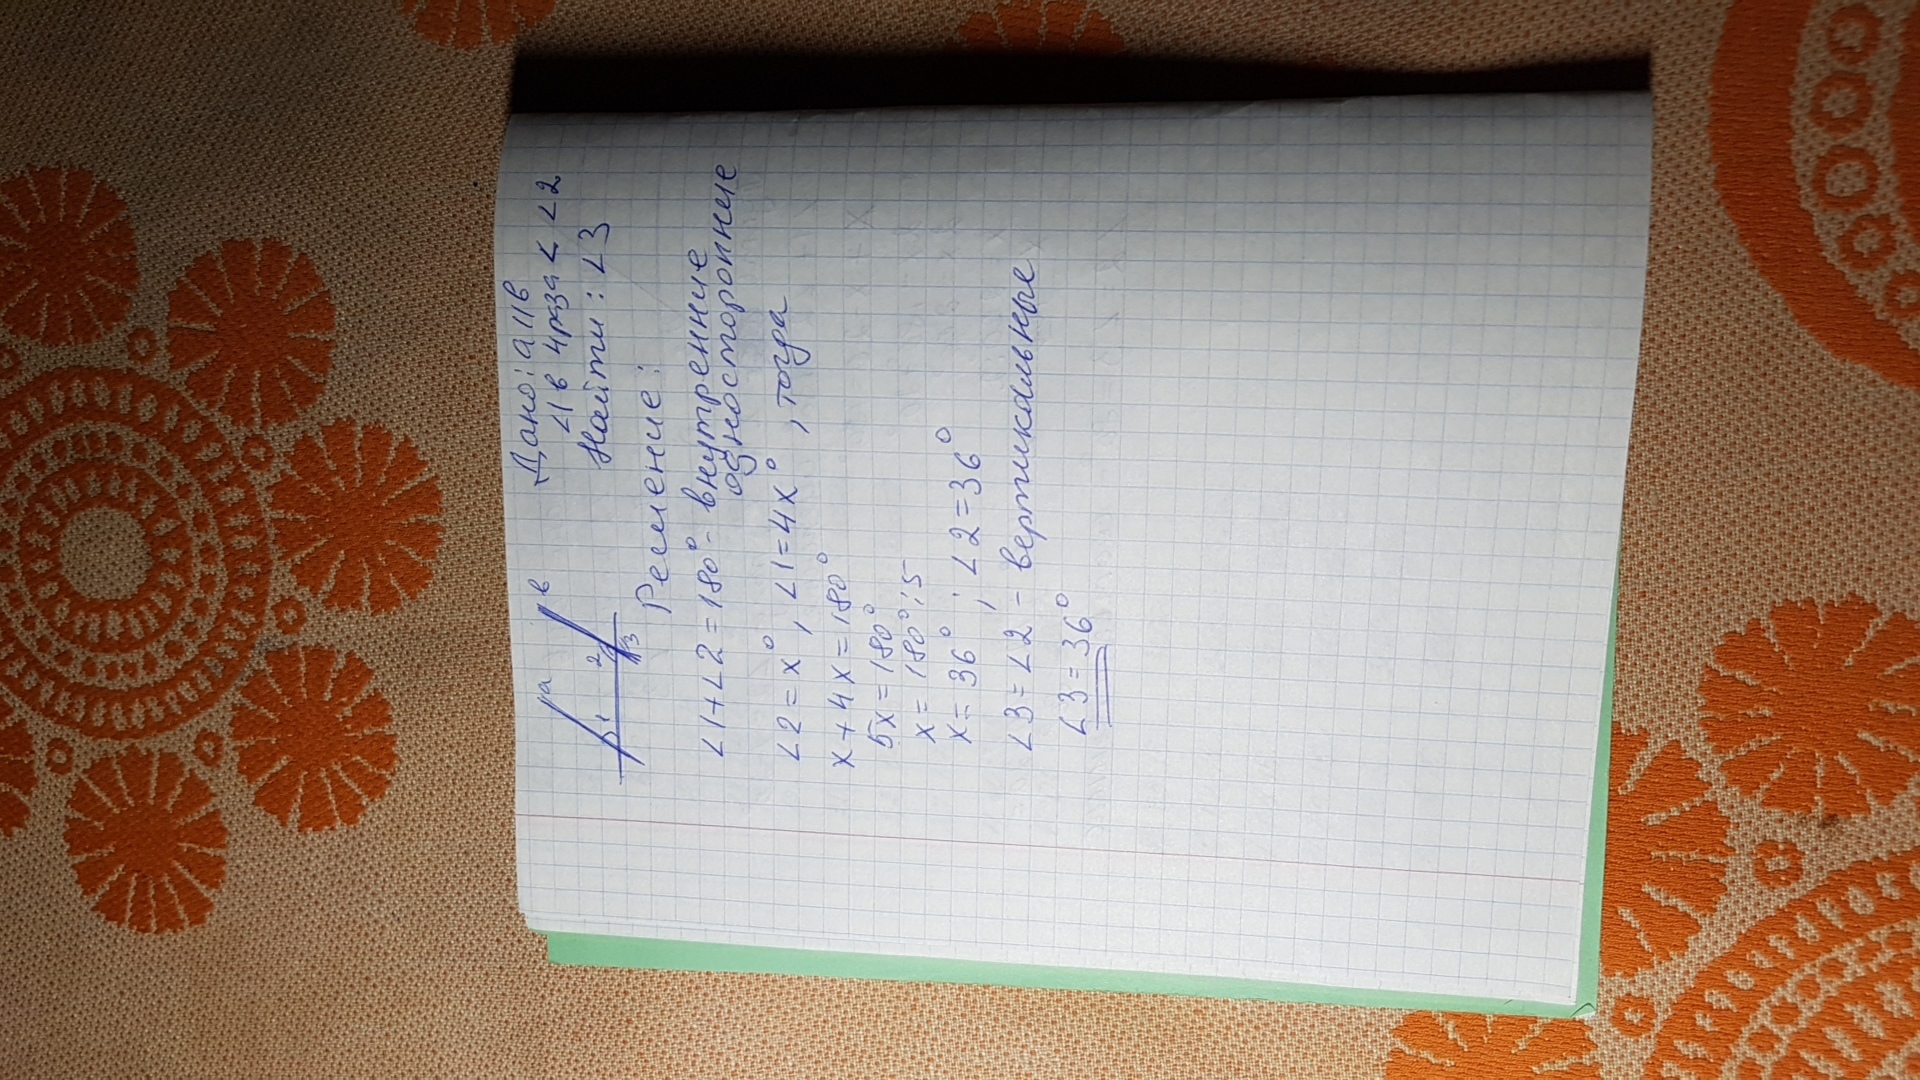 a
в
1
2
3
Дано: a || в
∠1 в 4 раза < ∠2
Найти: ∠3
Решение:
∠1+∠2=180° - внутренние
односторонние
∠2=x°, ∠1=4x°, тогда
x+4x=180°
5x=180°
x=180°:5
x=36°; ∠2=36°
∠3=∠2 - вертикальные
∠3=36°